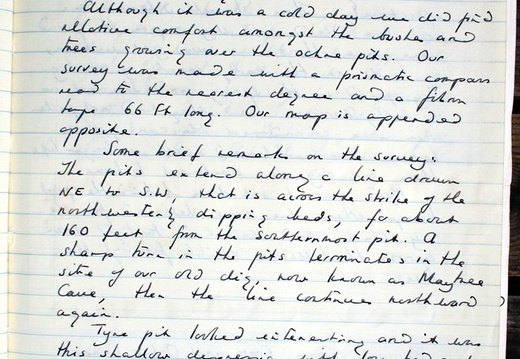 Although it was a cold day we did find
relative comfort amongst the bushes and
trees growing over the ochre pits. Our
survey was made with a prismatic compass
read to the nearest degree and a fibron
tape 66 Ft long. Our map is appended
opposite.
Some brief remarks on the survey:
The pits extend along a line drawn
NE to S.W, that is across the strike of the
northwesterly dipping beds, for about
160 feet from the southernmost pit. A
sharp turn in the pits terminates in the
site of our old dig, now known as Maytree
Cave, then the line continues northward
again.
Tyre pit looked interesting and it was
this shallow depression